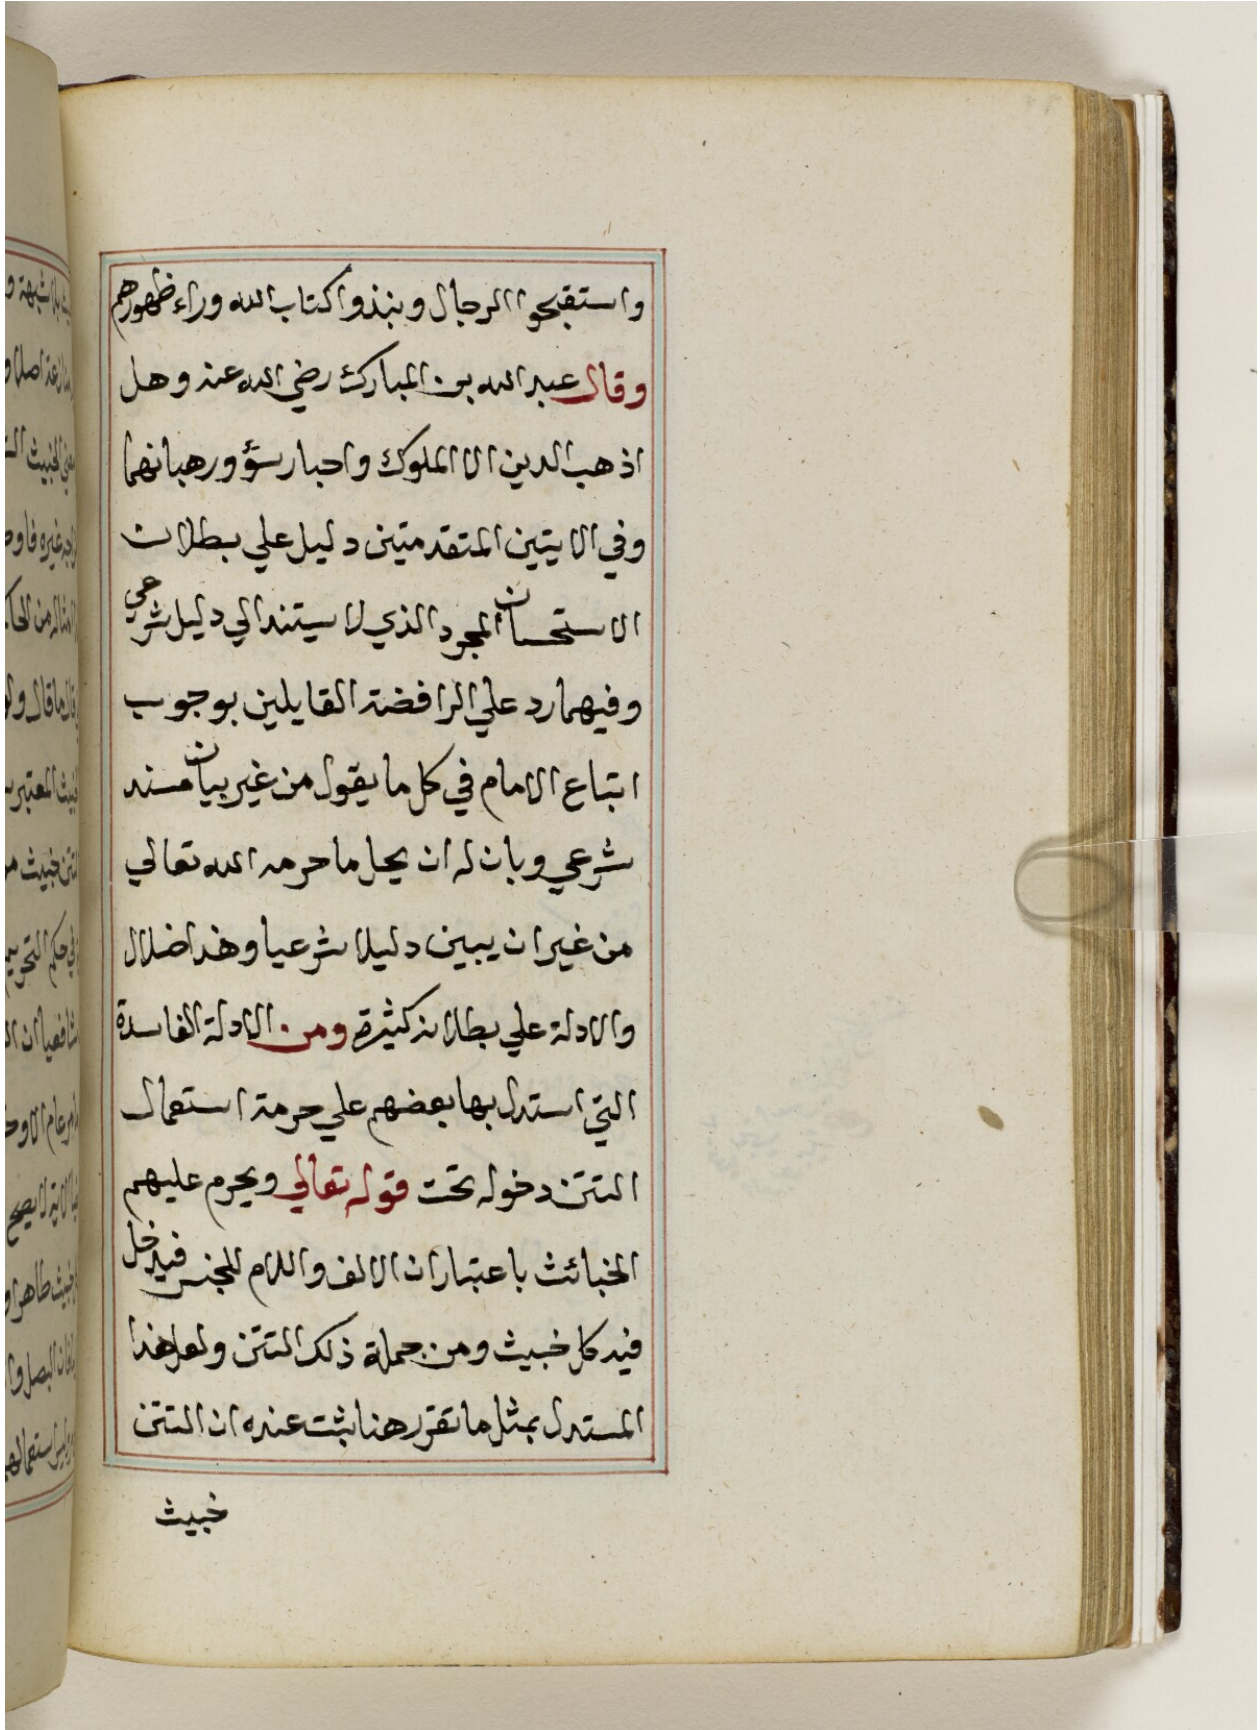 واستقبحوا الرجال ونبذوا كتاب الله وراء ظهورهم
وقال عبد الله بن المبارك رضي الله عنه وهل
اذهب الدين الا الملوك واحبار سؤ ورهبانهما
وفي الايتين المتقدمتين دليل علي بطلان
الاستحسان المجرد الذي لا يستند الي دليل شرعي
وفيهما رد علي الرافضة القايلين بوجوب
اتباع الامام في كل ما يقول من غير بيان مسند
شرعي وبان له ان يحل ما حرمه الله تعالي
من غير ان يبين دليلا شرعيا وهذا ضلال
والادلة علي بطلانه كثيرة ومن الادلة الفاسدة
التي استدل بها بعضهم علي حرمة استعمال
التتن دخوله تحت قوله تعالي ويحرم عليهم
الخبائث باعتبار ان الالف واللام للجنس فيدخل
فيه كل خبيث ومن جملة ذلك التتن ولعل هذا
المستدل بمثل ما تقرر هنا ثبت عنده ان التتن
خبيث